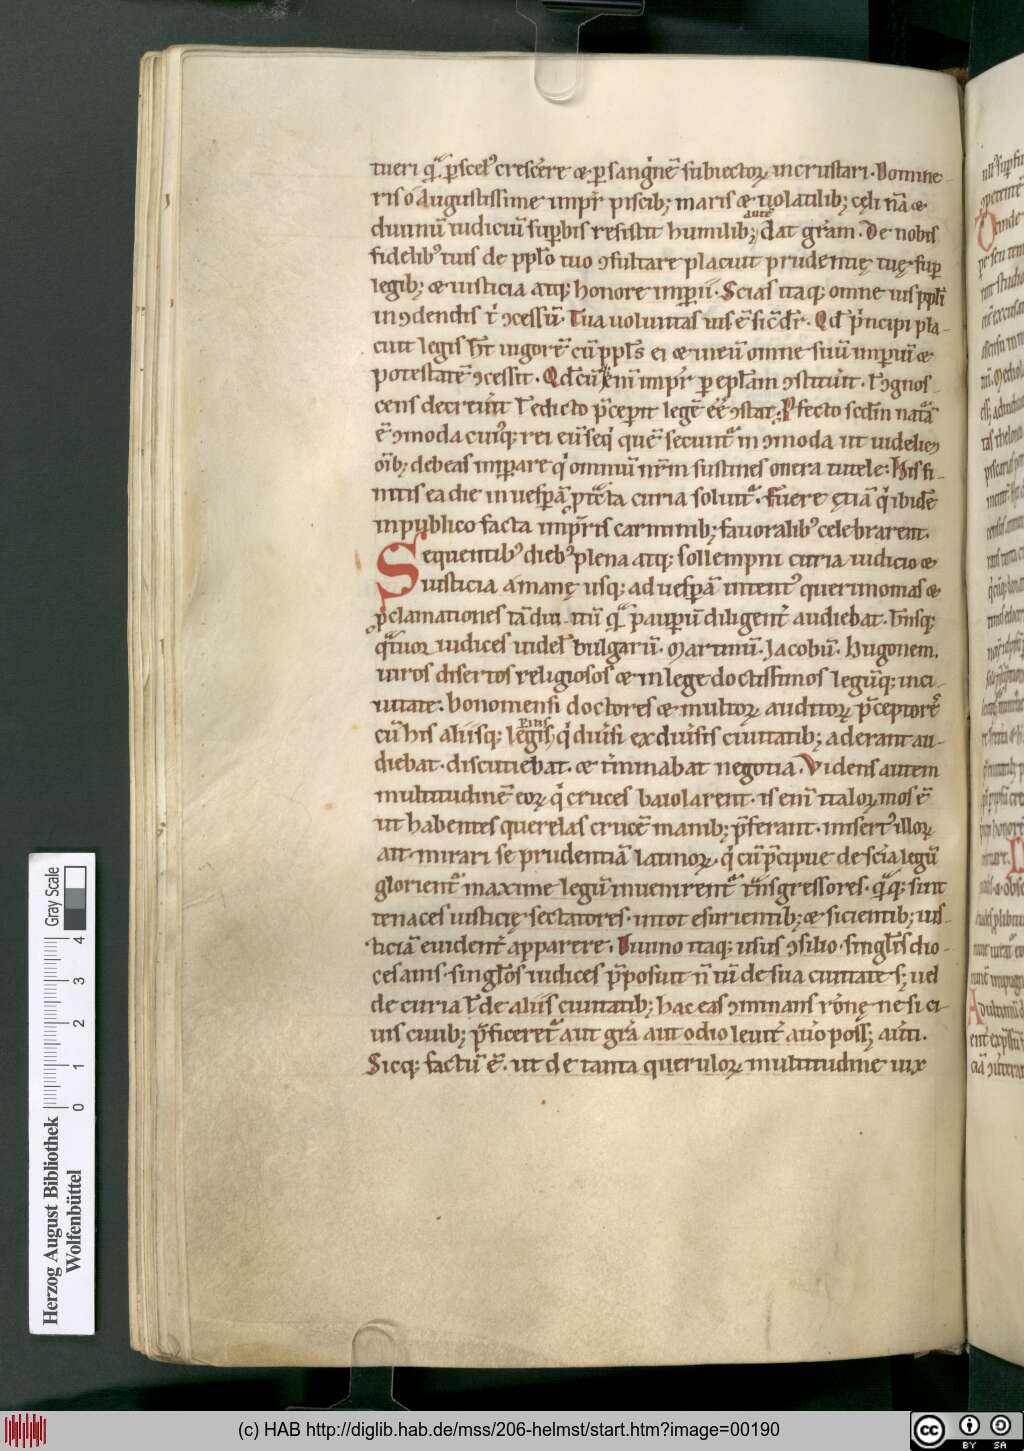 tueri quā p scel᷒ crescere ⁊ p sanguinē subiectoꝝ incrustari. Domine-
ris o augustissime impr̄ piscibꝫ maris ⁊ uolatilibꝫ cęli n̄a ⁊
autē
diuinū iudiciū suꝑbis resistit humilibꝫ dat grām. De nobis
fidelibꝰ tuis de ppl̄o tuo ↄsultare placuit prudentię tuę suꝑ
legibꝫ ⁊ iusticia atqꝫ honore imꝑii. Scias itaqꝫ omne ius ppl̄i
in ↄdendis ł ↄcessū. Tua uoluntas ius ē sic dr̄. Qd̄ principi pla-
cuit legis hr̄ uigorē cū ppl̄s ei ⁊ in eū omne suū imꝑiū ⁊
potestatē ↄcessit. Qd̄cūqꝫ enī impr̄ ꝑ epl̄am ↄstituit. ł ↄgnos-
cens decreuit ł edicto p̄cepit legē eē̄ ↄstat. Ꝓfecto scdm̄ naturā
ē ↄmoda cuiqꝫ rei eū seqi quē secuntur inↄmoda ut uidelicꝫ
oībꝫ debeas imꝑare qi omniū nr̄m sustines onera tutele. His fi-
nitis ea die in uesꝑā ptēta curia soluitur. Fuere etiā qi ibidē
in publico facta impr̄is carminibꝫ fauoralibꝰ celebrarent.
Sequentibꝰ diebꝰ plena atqꝫ sollempni curia iudicio ⁊
iusticia a manę usqꝫ ad uesꝑā intentꝰ querimonias ⁊
ꝓclamationes tā diuitū quā pauꝑū diligent̄ audiebat. hn̄sqꝫ
quatuor iudices uidel̄ bulgarū. Martinū. Jacobū. Hugonem.
uiros disertos religiosos ⁊ in lege doctissimos legūqꝫ in ci-
uitate. bononiensi doctores ⁊ multoꝝ auditoꝝ p̄ceptores
cū his aliisqꝫ legis
peritis
qi diuersi ex diuersis ciuitatibꝫ aderant au-
diebat. discutiebat. ⁊ t̄minabat negotia. Videns autem
multitudinē eoꝝ qi cruces baiolarent. is enī italoꝝ mos ē
ut habentes querelas crucē manibꝫ p̄ferant. misertꝰ illoꝝ
ait. mirari se prudentiā latinoꝝ. qi cū p̄cipue de scīa legū
glorientur maxime legū inuenirentur tr̄nsgressores. quāqꝫ sint
tenaces iusticię sectatores. in tot esurientibꝫ ⁊ sicientibꝫ ius-
ticiā euident̄ apparere. Diuino itaqꝫ usus ↄsilio. singl̄is dio-
cesanis. singl̄os iudices p̄posuit n̄ tn̄ de sua ciuitate sꝫ uel
de curia ł de aliis ciuitatibꝫ hac eas ↄminans rōnę ne si ci-
uis ciuibꝫ p̄ficeretur aut gr̄a aut odio leuit̄ auo possꝫ auti.
Sicqꝫ factū ē. ut de tanta queruloꝝ multitudine uix
Herzog August Bibliothek
Wolfenbüttel
Gray Scale
0 1 2 3 4
(c) HAB http://diglib.hab.de/mss/206-helmst/start.htm?image=00190
cc BY SA